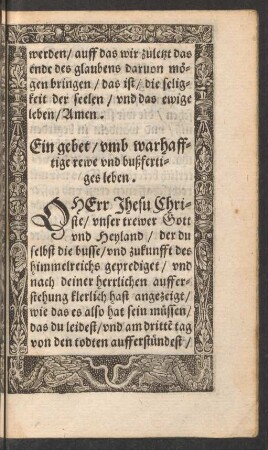 werden/ auff das wir zuletzt das
ende des glaubens daruon mö-
gen bringen/ das ist/ die selig-
keit der seelen/ vnd das ewige
leben/ Amen.
Ein gebet/ vmb warhaff-
tige rewe vnd bußferti-
ges leben.
O HErr Jhesu Chri-
ste/ vnser trewer Gott
vnd Heyland/ der du
selbst die busse/ vnd zukunfft des
himmelreichs geprediget/ vnd
nach deiner herrlichen auffer-
stehung klerlich hast angezeigt/
wie das es also hat sein müssen/
das du leidest/ vnd am drittē tag
von den todten aufferstündest/